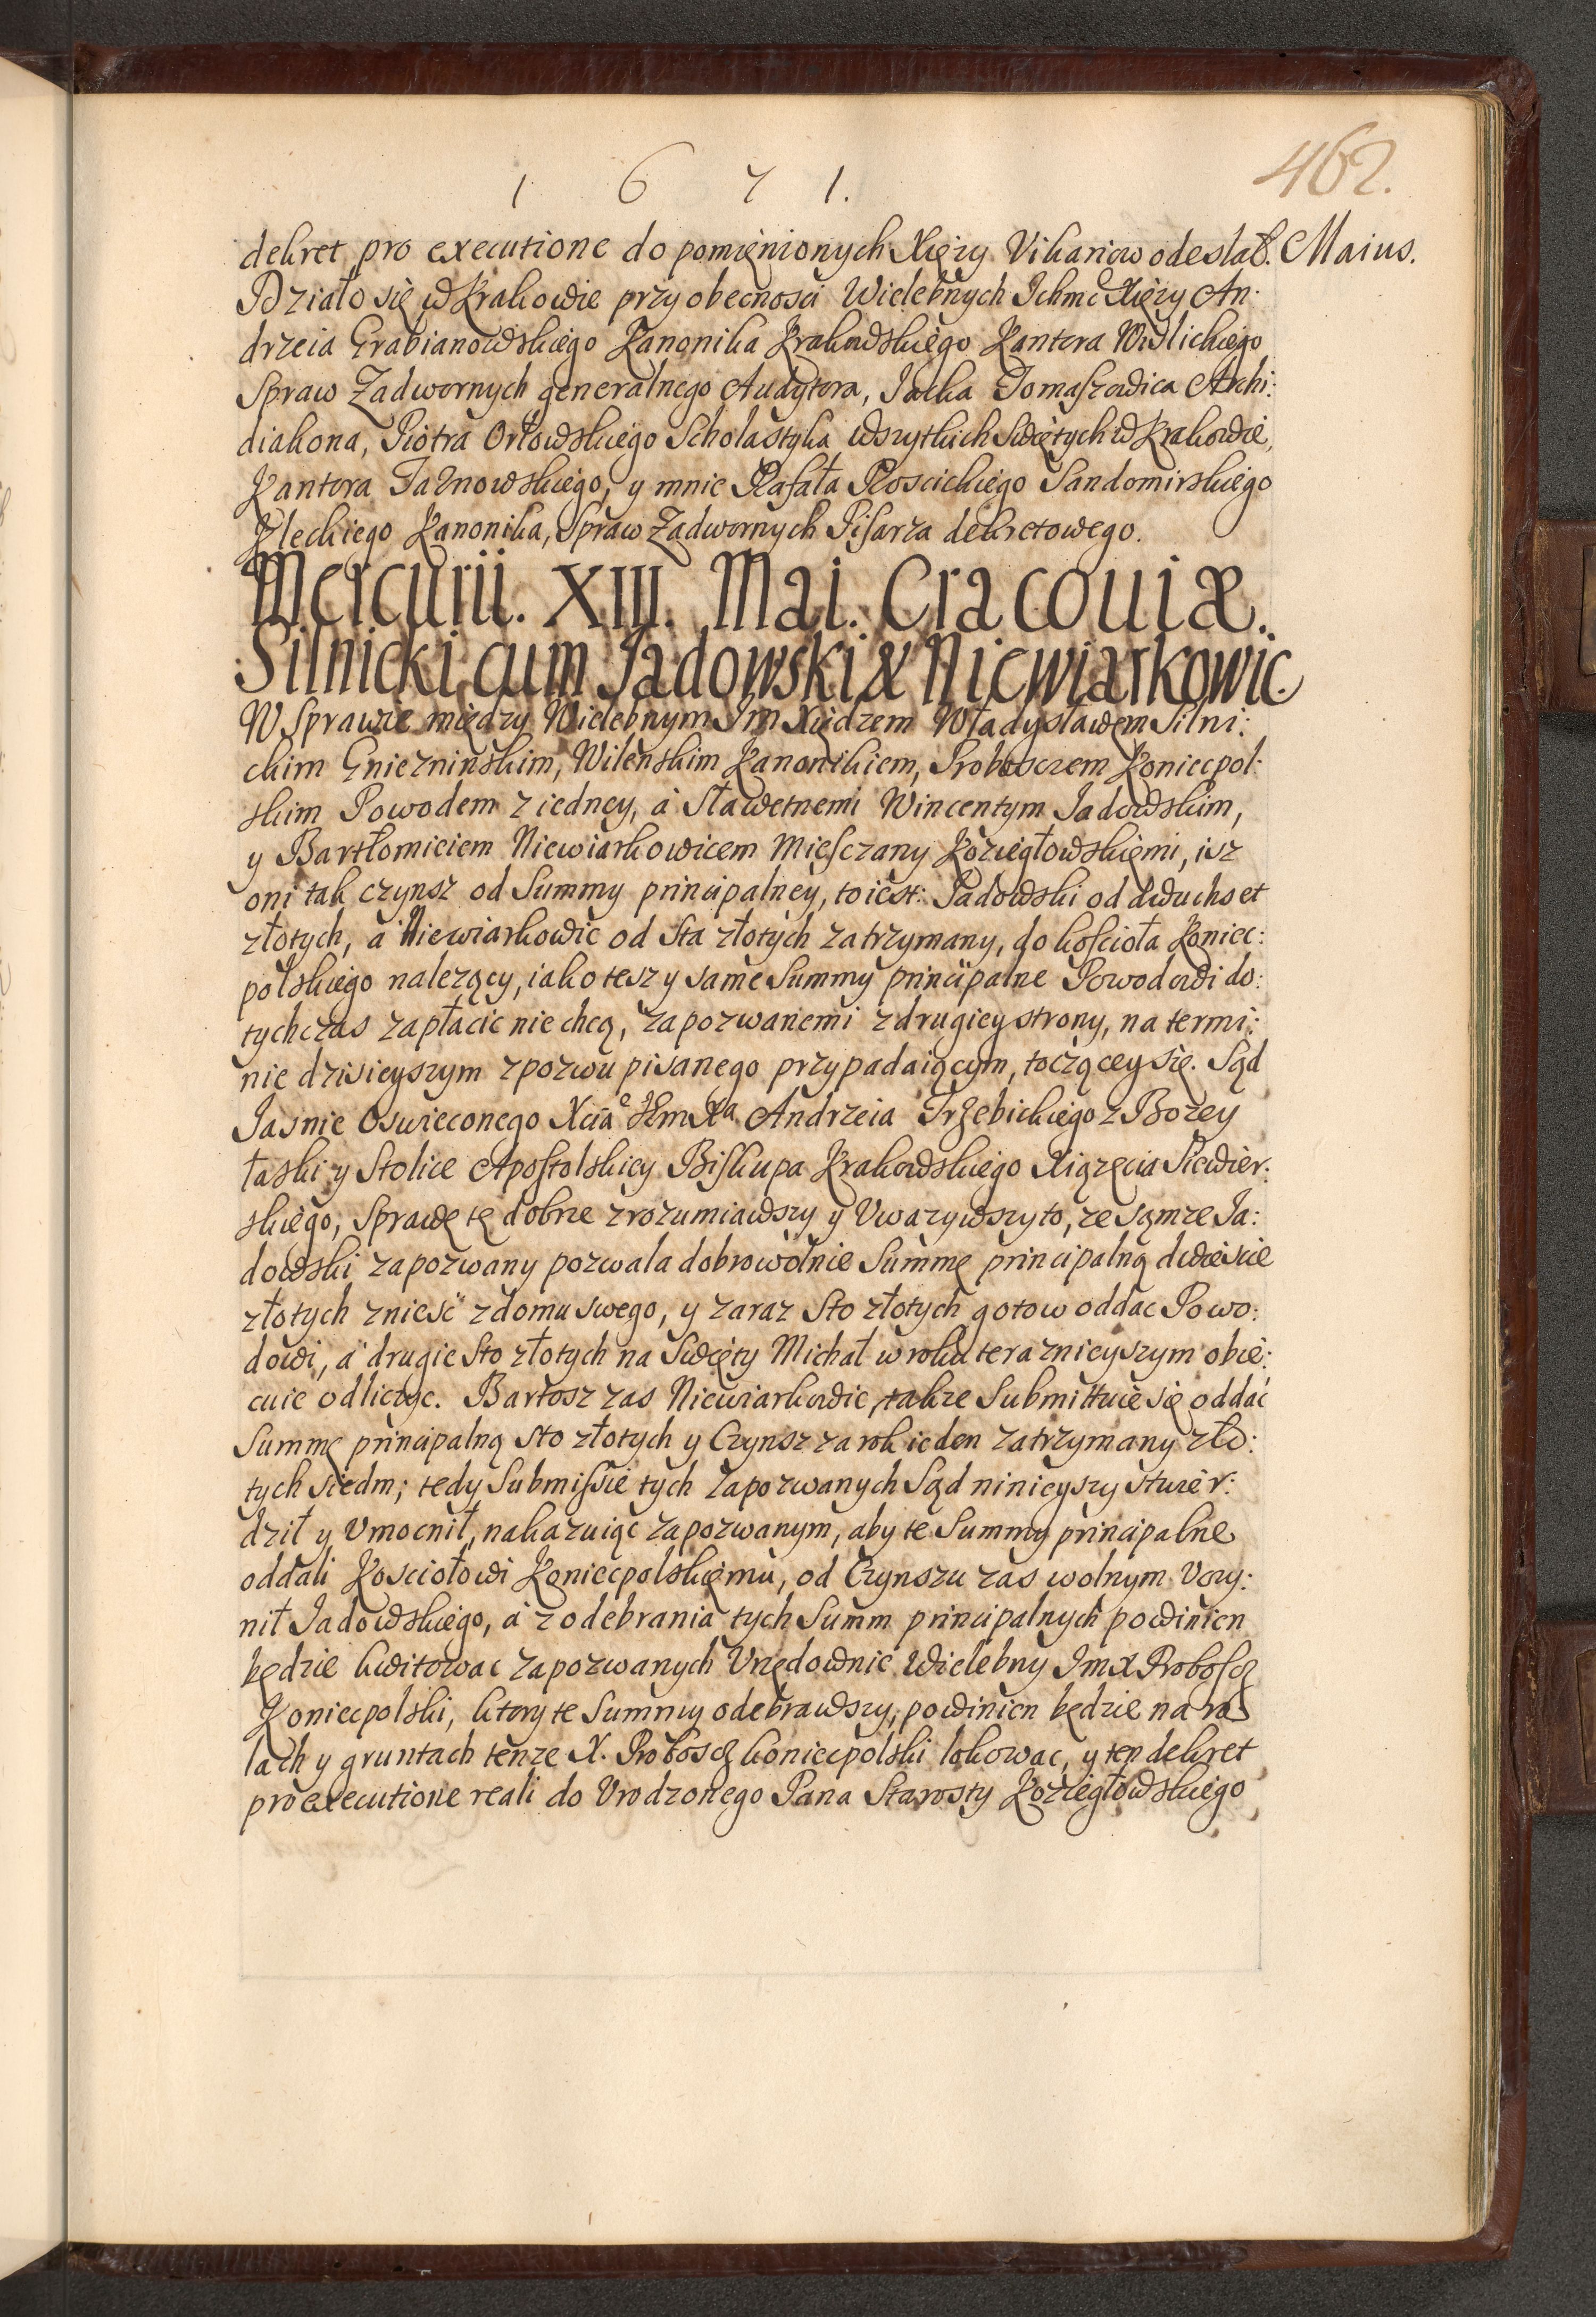 1 6 7 1.
462.
dekret pro executione do pomięnionych Xięzy Vikariow odeslał.
Maius.
Działo się w Krakowie przy obecnosci Wielebnych Ichmc Xięzy An:
drzeia Grabianowskiego Kanonika Krakowskiego Kantora Wislickiego
Spraw Zadwornych generalnego Audytora, Jacka Tomaszowica Archi:
diakona, Piotra Orłowskiego Scholastyka wszytkich Swiętych w Krakowie,
Kantora Tarnowskiego, y mnie Rafała Roscickiego Sandomirskiego
Kleckiego Kanonika, Spraw Zadwornych Pisarza dekretowego.
Mercurii. XIII. Mai. Cracouiæ.
Silnicki cum Jadowski & Niewiarkowic.
W Sprawie między Wielebnym Im Xiędzem Władysławem Silni:
ckim Gnieznińskim, Wileńskim Kanonikiem, Proboszczem Koniecpol:
skim Powodem z iedney, a Sławetnemi Wincentym Jadowskim,
y Bartłomieiem Niewiarkowicem Miesczany Koziegłowskiemi, isz
oni tak czynsz od Summy principalney, to iest: Jadowski od dwuchset
złotych, a Niewiarkowic od Sta złotych zatrzymany, do kościoła Koniec:
polskiego nalezący, iako tesz y same Summy principalne Powodowi do:
tychczas zapłacic nie chcą, zapozwanemi z drugiey strony, na termi:
nie dzisieyszym z pozwu pisanego przypadaiącym, toczącey się. Sąd
Jasnie Oswieconego Xcia Im Xa Andrzeia Trzebickiego z Bozey
łaski y Stolice Apostolskiey Biskupa Krakowskiego Xiązęcia Siewier:
skiego, Sprawę tę dobrze zrozumiawszy y Vwazywszy to, ze sąmze Ja:
dowski zapozwany pozwala dobrowolnie Summę principalną dwieście
złotych znieść z domu swego, y zaraz Sto złotych gotow oddac Powo:
dowi, a drugie Sto złotych na Swięty Michał w roku teraznieyszym obie:
cuie odliczyc. Bartosz zas Niewiarkowic, takze Submittuie się oddać
Summę principalną Sto złotych y Czynsz za rok ieden zatrzymany zło:
tych siedm; tedy Submissie tych Zapozwanych Sąd ninieyszy stwier:
dził y Vmocnił, nakazuiąc Zapozwanym, aby te Summy principalne
oddali Kościołowi Koniecpolskiemu, od Czynszu zas wolnym Vczy:
nił Jadowskiego, a z odebrania tych Summ principalnych powinien
będzie kwitowac Zapozwanych Vrzędownie Wielebny Im X Proboscz
Koniecpolski, ktory te Summy odebrawszy, powinien będzie na ro
lach y gruntach tenze X. Proboscz koniecpolski lokowac, y ten dekret
pro executione reali do Vrodzonego Pana Starosty Koziegłowskiego